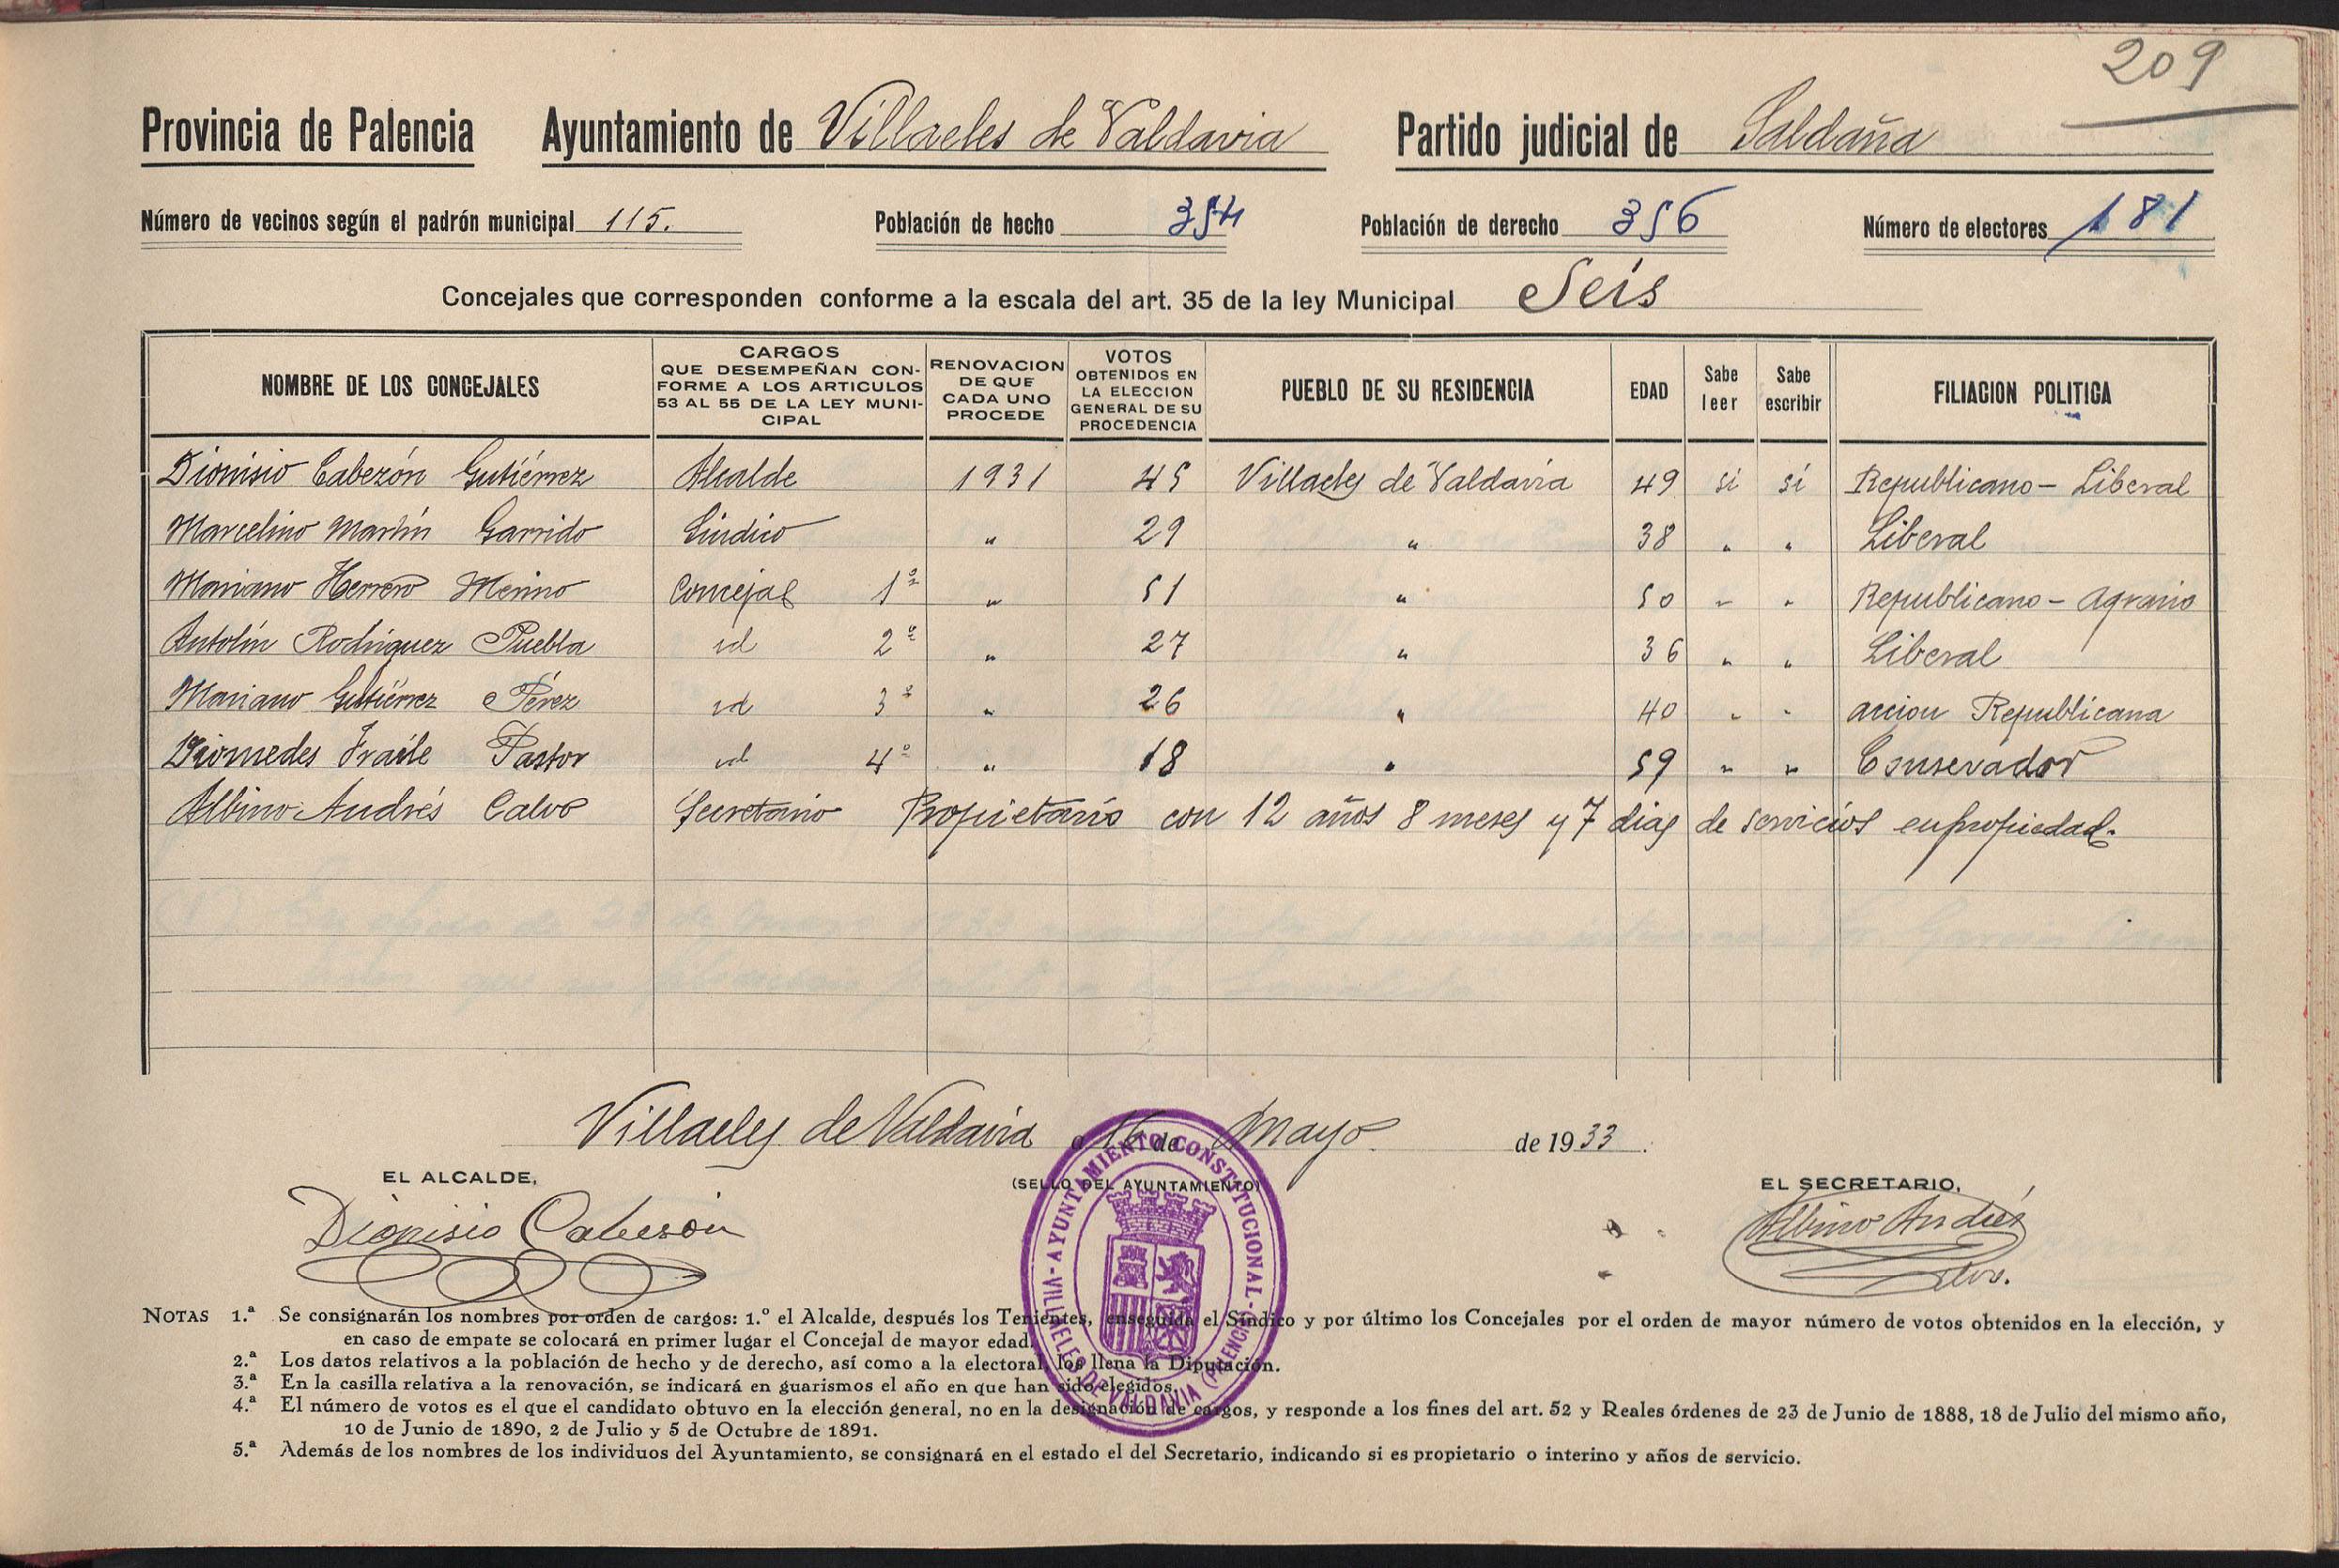 209
Provincia de Palencia Ayuntamiento de Villaeles de Valdavia Partido judicial de Saldaña
Número de vecinos según el padrón municipal 115. Población de hecho 354 Población de derecho 356 Número de electores 181
Concejales que corresponden conforme a la escala del art. 35 de la ley Municipal Seis
NOMBRE DE LOS CONCEJALES
CARGOS
QUE DESEMPEÑAN CON-
FORME A LOS ARTICULOS
53 AL 55 DE LA LEY MUNI-
CIPAL
RENOVACION
DE QUE
CADA UNO
PROCEDE
VOTOS
OBTENIDOS EN
LA ELECCION
GENERAL DE SU
PROCEDENCIA
PUEBLO DE SU RESIDENCIA
EDAD
Sabe
leer
Sabe
escribir
FILIACION POLITICA
Dionisio Cabezón Gutiérrez Alcalde 1931 45 Villaeles de Valdavia 49 si sí Republicano - Liberal
Marcelino Martín Garrido Sindico " 29 " 38 " " Liberal
Mariano Herrero Merino Concejal 1º " 51 " 50 " " Republicano - agrario
Antolín Rodríguez Puebla id 2º " 27 " 36 " " Liberal
Mariano Gutiérrez Pérez id 3º " 26 " 40 " " accion Republicana
Diomedes Fraile Pastor id 4º " 18 " 59 " " Conservador
Albino Andrés Calvo Secretario Propietario con 12 años 8 meses y 7 dias de servicios en propiedad.
Villaeles de Valdavia a 16 de Mayo de 1933.
EL ALCALDE, (SELLO DEL AYUNTAMIENTO) EL SECRETARIO,
Dionisio Cabezón
Albino Andrés
Calvo.
AYUNTAMIENTO CONSTITUCIONAL - VILLAELES DE VALDAVIA (PALENCIA)
NOTAS 1.ª Se consignarán los nombres por orden de cargos: 1.º el Alcalde, después los Tenientes, enseguida el Síndico y por último los Concejales por el orden de mayor número de votos obtenidos en la elección, y
en caso de empate se colocará en primer lugar el Concejal de mayor edad.
2.ª Los datos relativos a la población de hecho y de derecho, así como a la electoral, los llena la Diputación.
3.ª En la casilla relativa a la renovación, se indicará en guarismos el año en que han sido elegidos.
4.ª El número de votos es el que el candidato obtuvo en la elección general, no en la designación de cargos, y responde a los fines del art. 52 y Reales órdenes de 23 de Junio de 1888, 18 de Julio del mismo año,
10 de Junio de 1890, 2 de Julio y 5 de Octubre de 1891.
5.ª Además de los nombres de los individuos del Ayuntamiento, se consignará en el estado el del Secretario, indicando si es propietario o interino y años de servicio.